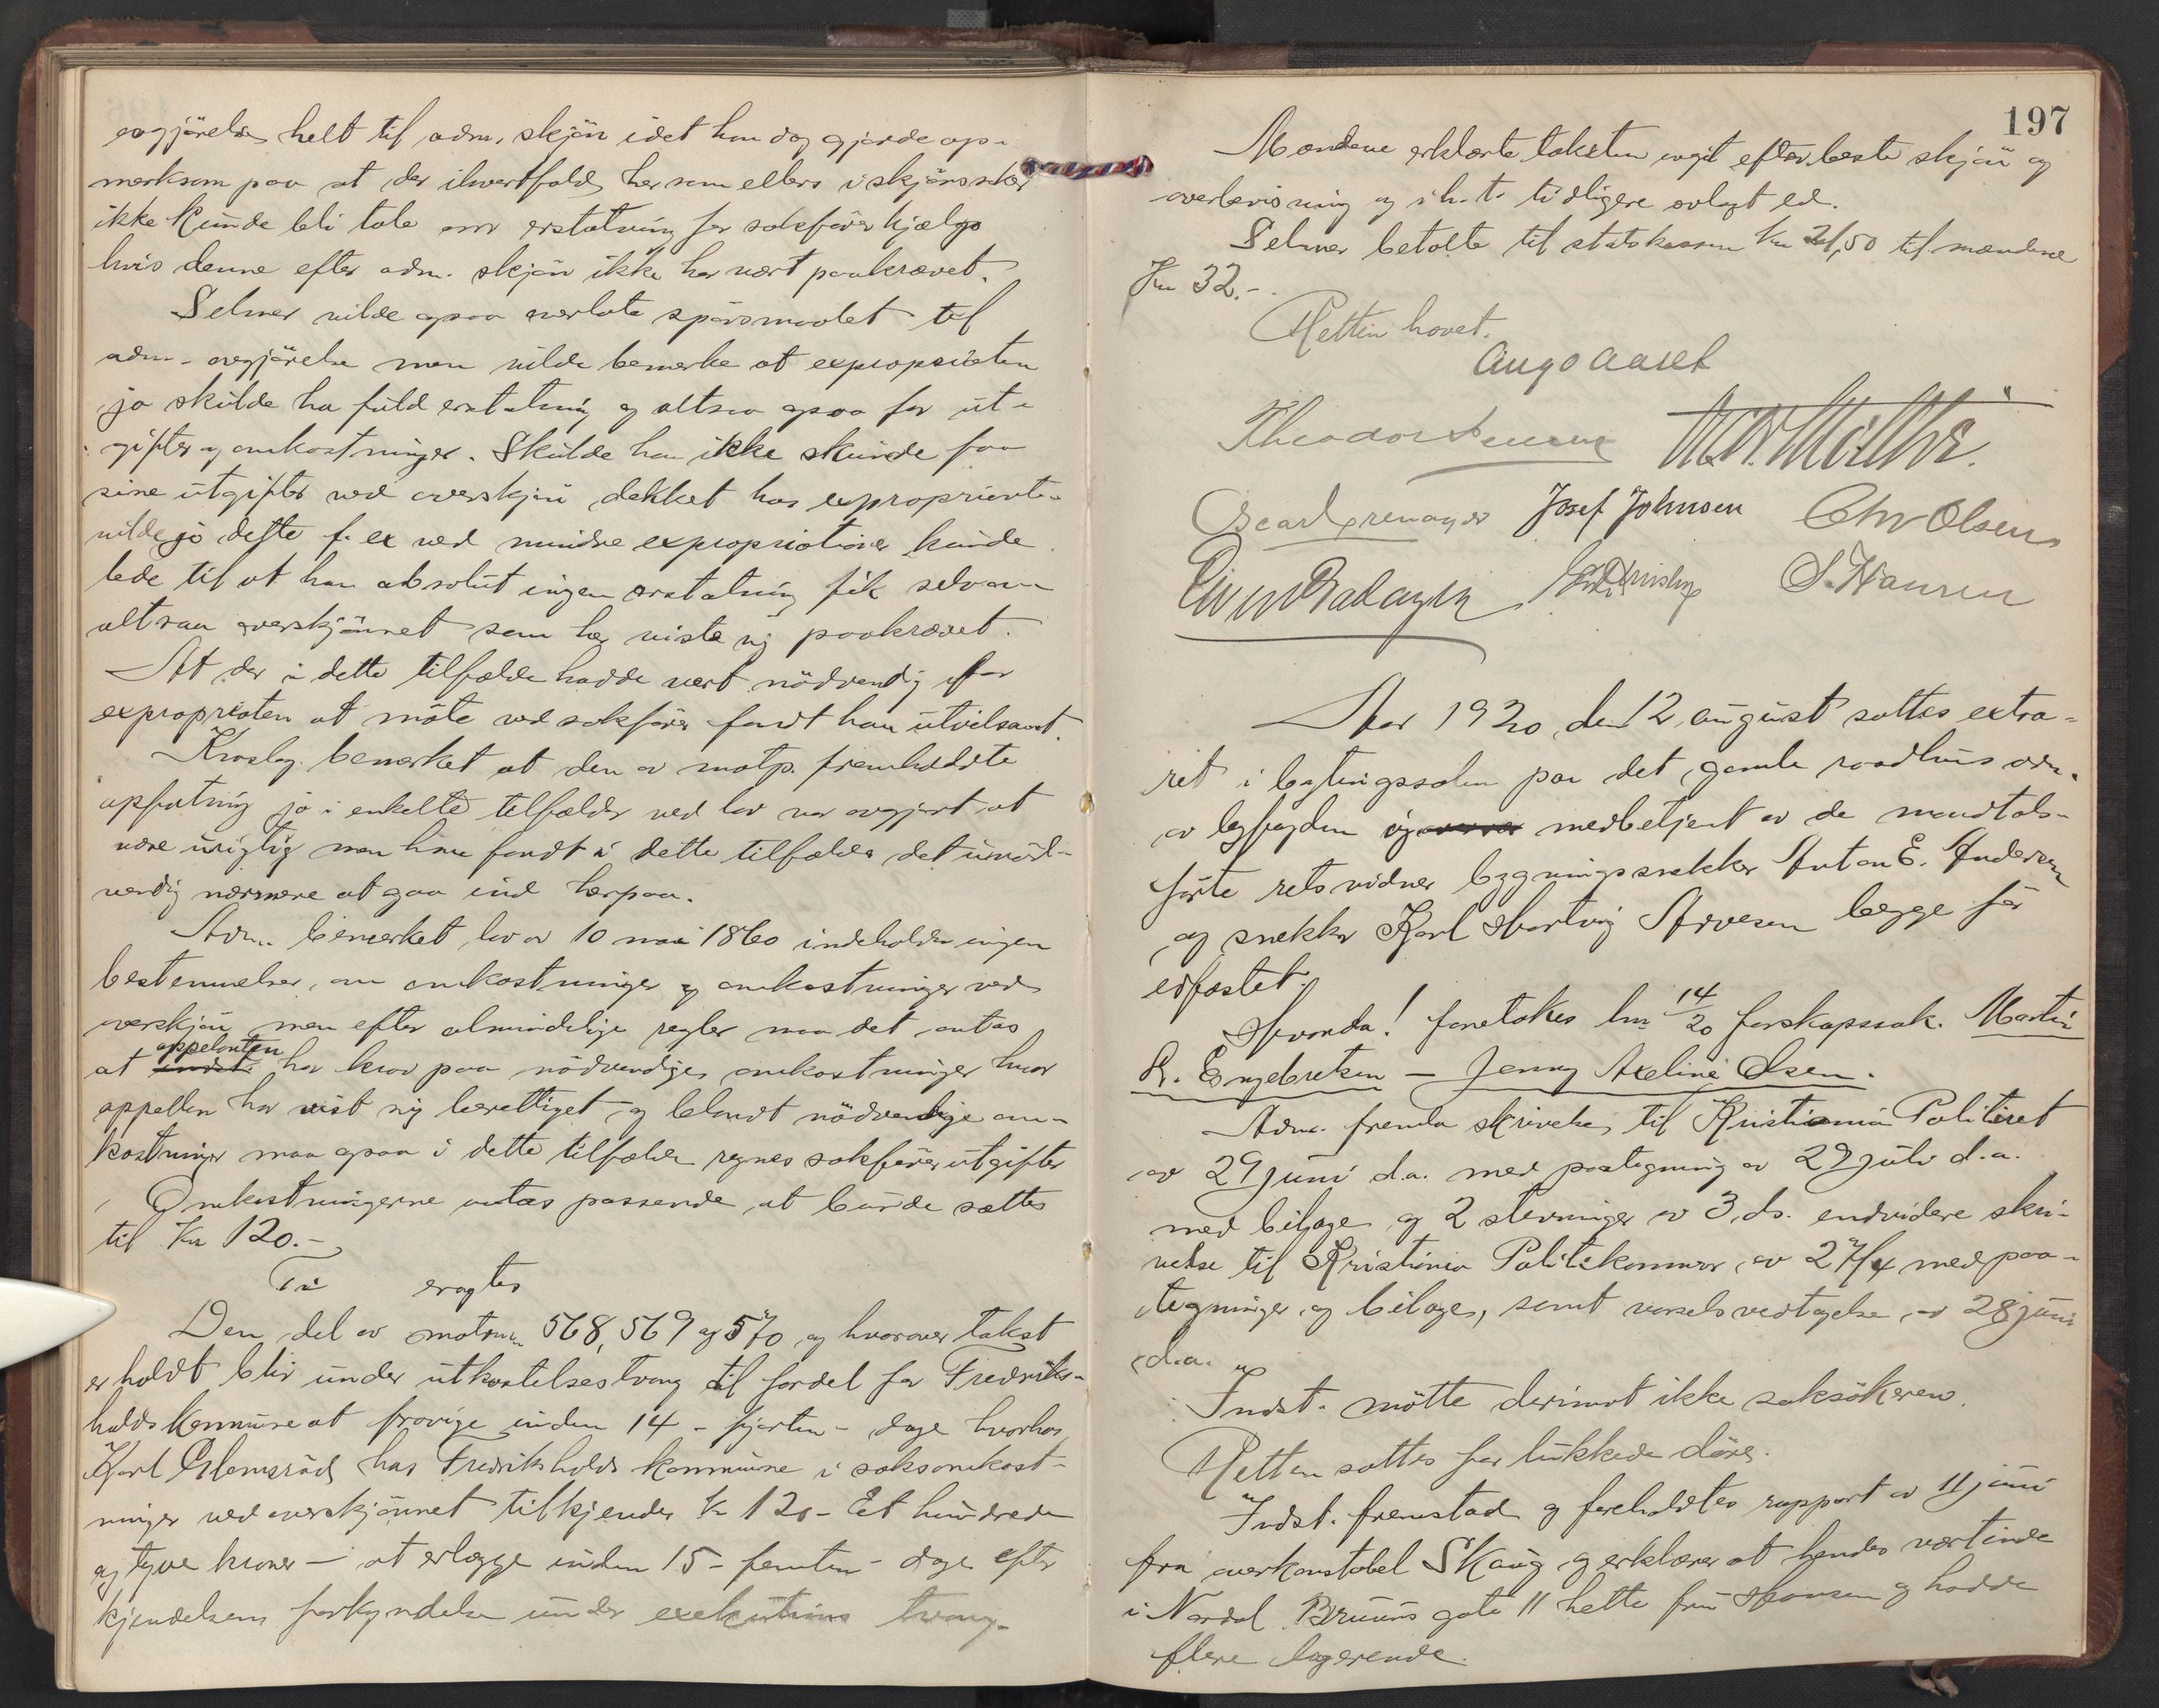 avgjörelse helt til adm. skjön idet han dog gjorde op-
merksom paa at der ihvertfald her som ellers i skjönssaker
ikke kunde bli tale om erstatning for sakförerhjælp
hvis denne efter adm. skjön ikke har vært paakrævet.
Selmer vilde ogsaa overlate spörsmaalet til
adm. avgjörelse men vilde bemerke at expropriaten
jo skulde ha fuld erstatning og altsaa ogsaa for ut-
gifter og omkostninger. Skulde han ikke skunde faa
sine utgifter ved overskjön dekket hos expropriante-
vilde jo dette f. ex ved mindre expropriationer kunde
lede til at han absolut ingen erstatning fik selvom
altsaa overskjönnet som her viste sig paakrævet.
At der i dette tilfælde hadde vært nödvendig for
expropriaten at möte ved sakförer fandt han utvilsomt.
Kroslag bemerket at den av motp. fremholdte
opfatning jo i enkelte tilfælder ved lov var avgjort at
være urigtig men han fandt i dette tilfælde det unöd-
vendig nærmere at gaa ind herpaa.
Adm. bemerket, lov av 10 mai 1860 indeholder ingen
bestemmelser om omkostninger og omkostninger ved
overskjön men efter almindelige regler maa det antas
appelanten
at har krav paa nödvendige omkostninger hvor
appellen har vist sig berettiget og blandt nödvendige om-
kostninger maa ogsaa i dette tilfælde regnes sakförerutgifter
Omkostningerne antas passende at burde sættes
til Kr 120.-
Ti eragtes
Den del av matr.nr. 568, 569 og 570 og hvorover takst
er holdt blir under utkastelsestvang til fordel for Fredriks-
halds kommune at fravige inden 14 - fjorten - dage hvorhos
Karl Glomsröd hos Fredrikshalds kommune i saksomkost-
ninger ved overskjönnet tilkjendes Kr 120 - Et hundrede
og tyve kroner - at erlægge inden 15 - femten - dage efter
kjendelsens forkyndelse under exekutions tvang.
197
Mændene erklærte taksten avgit efter beste skjön og
overbevisning og i h. t. tidligere avlagt ed.
Selmer betalte til statskassen Kr 21,50 til mændene
Kr 32.-
Retten hævet.
Aug Aaset
Theodor
Oscar Josef Johnsen Chr Olsen
S. Hansen
Aar 1920 den 12 august sattes extra-
ret i bytingssalen paa det gamle raadhus adm.
av byfogden og medbetjent av de mandtals-
förte retsvidner bygningssnekker Anton E. Andersen
og snekker Karl Hartvig Arvesen begge för
edfæstet.
Hvorda! foretokes lnr 14/20 farskapssak. Martin
R. Engebretsen - Jenny Axeline Olsen.
Adm. fremla skrivelse til Kristiania Politiret
av 29 juni d.a. med paategning av 29 juli d.a.
med bilage og 2 stevninger av 3. ds. endvidere skri-
velse til Kristiania Politikammer, av 27/4 med paa-
tegninger og bilager, samt varselsvedtagelse av 28 juni
d.a.
Indst. mötte derimot ikke saksökeren.
Retten sattes for lukkede döre.
Indst. fremstod og foreholdtes rapport av 11 juni
fra overkonstabel Skaug og erklærer at hendes vertinde
i Nordal Bruuns gate 11 hette fru Hansen og hadde
flere logerende.